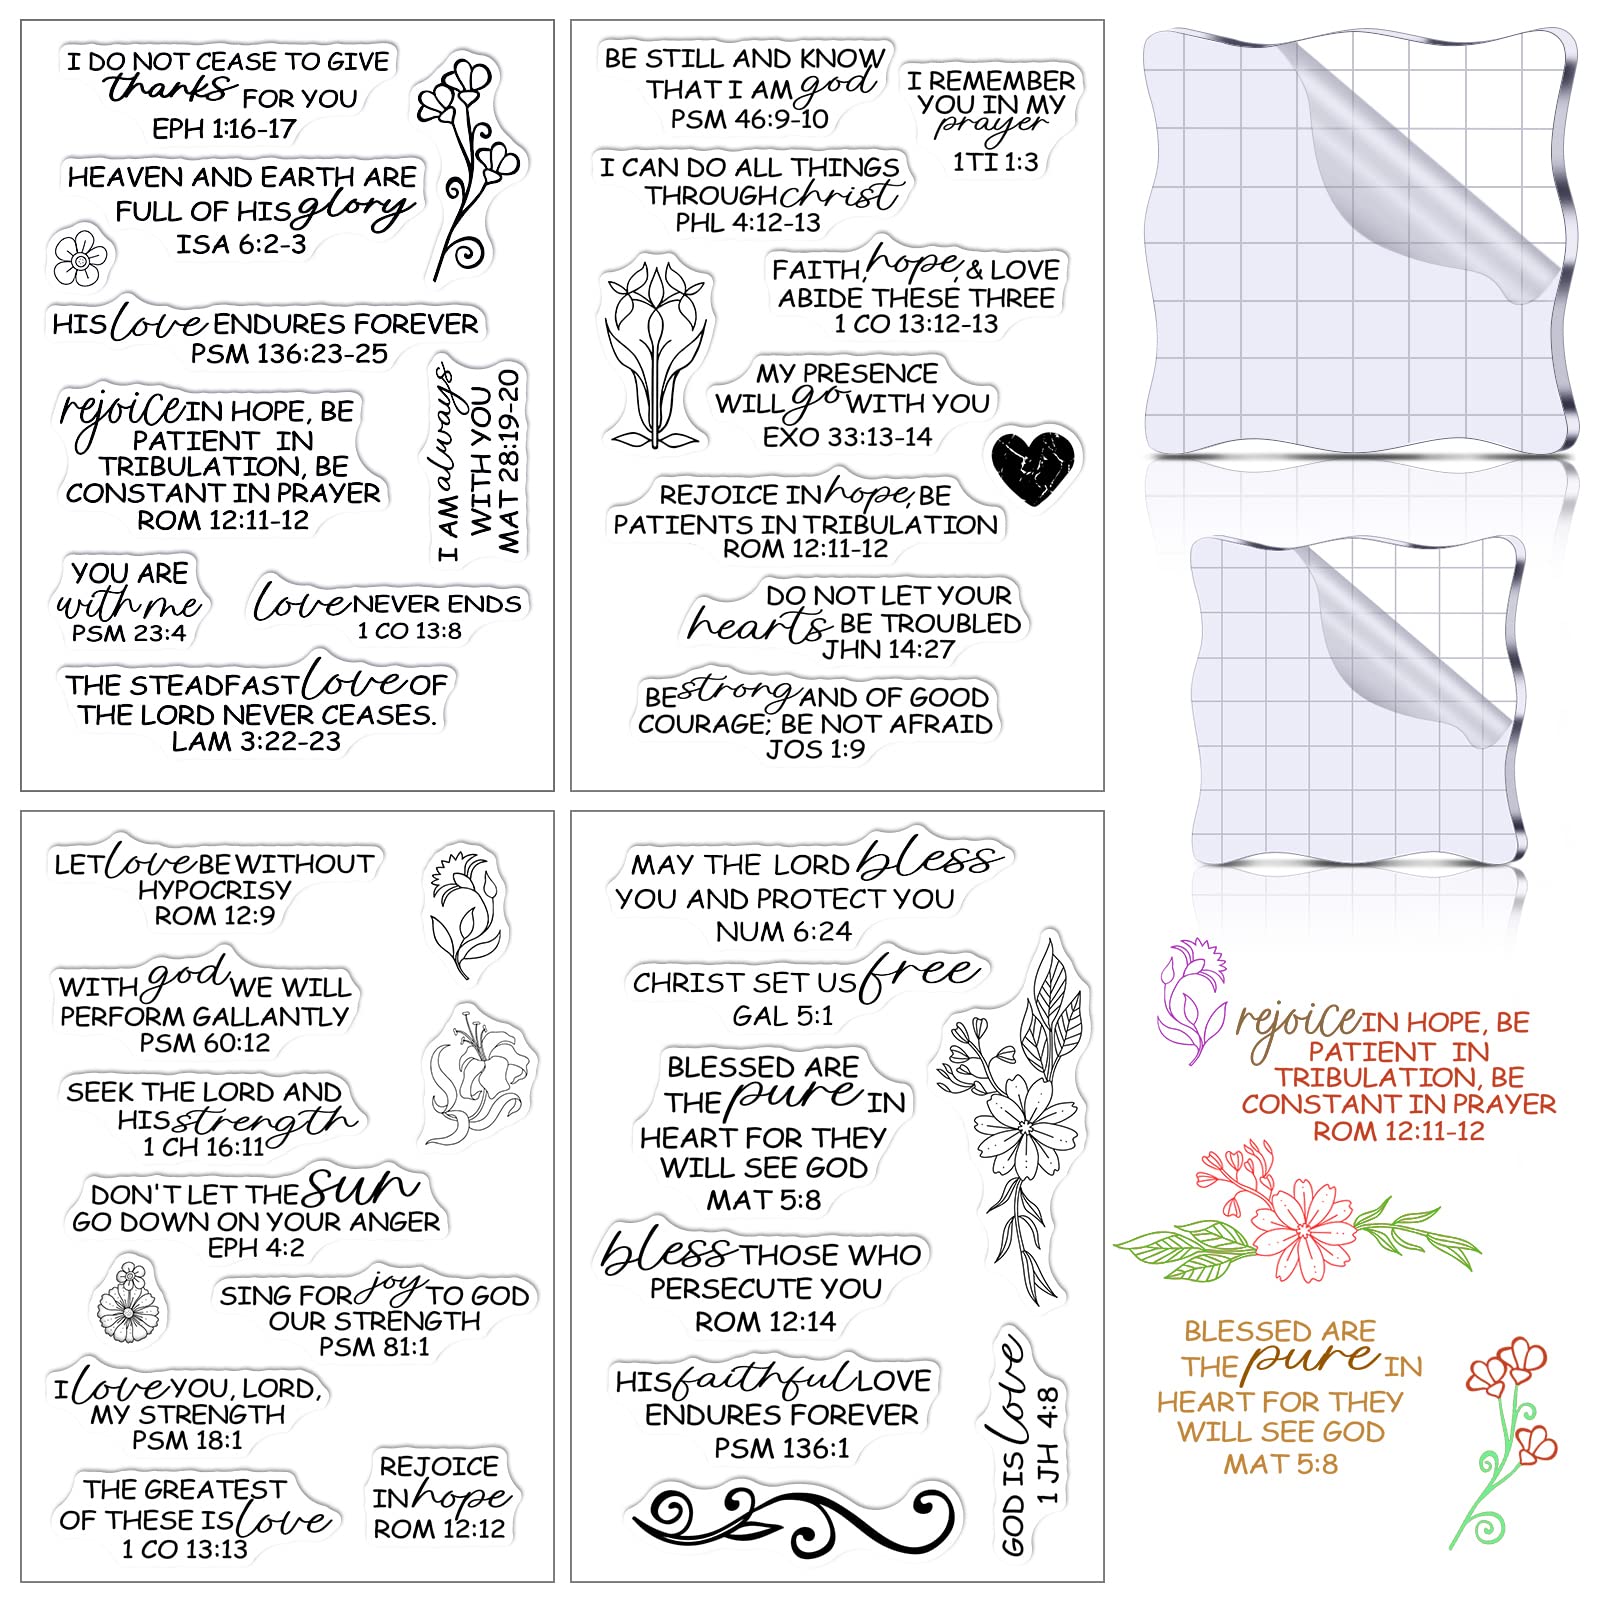 I DO NOT CEASE TO GIVE
thanks FOR YOU
EPH 1:16-17
HEAVEN AND EARTH ARE
FULL OF HIS glory
ISA 6:2-3
HIS love ENDURES FOREVER
PSM 136:23-25
rejoice IN HOPE, BE
PATIENT IN
TRIBULATION, BE
CONSTANT IN PRAYER
ROM 12:11-12
I AM always
WITH YOU
MAT 28:19-20
YOU ARE
with me
PSM 23:4
love NEVER ENDS
1 CO 13:8
THE STEADFAST love OF
THE LORD NEVER CEASES.
LAM 3:22-23
BE STILL AND KNOW
THAT I AM god
PSM 46:9-10
I REMEMBER
YOU IN MY
prayer
1TI 1:3
I CAN DO ALL THINGS
THROUGH christ
PHL 4:12-13
FAITH, hope, & LOVE
ABIDE THESE THREE
1 CO 13:12-13
MY PRESENCE
WILL go WITH YOU
EXO 33:13-14
REJOICE IN hope, BE
PATIENTS IN TRIBULATION
ROM 12:11-12
DO NOT LET YOUR
hearts BE TROUBLED
JHN 14:27
BE strong AND OF GOOD
COURAGE; BE NOT AFRAID
JOS 1:9
LET love BE WITHOUT
HYPOCRISY
ROM 12:9
WITH god WE WILL
PERFORM GALLANTLY
PSM 60:12
SEEK THE LORD AND
HIS strength
1 CH 16:11
DON'T LET THE sun
GO DOWN ON YOUR ANGER
EPH 4:2
SING FOR joy TO GOD
OUR STRENGTH
PSM 81:1
I love YOU, LORD,
MY STRENGTH
PSM 18:1
THE GREATEST
OF THESE IS love
1 CO 13:13
REJOICE
IN hope
ROM 12:12
MAY THE LORD bless
YOU AND PROTECT YOU
NUM 6:24
CHRIST SET US free
GAL 5:1
BLESSED ARE
THE pure IN
HEART FOR THEY
WILL SEE GOD
MAT 5:8
bless THOSE WHO
PERSECUTE YOU
ROM 12:14
HIS faithful LOVE
ENDURES FOREVER
PSM 136:1
GOD IS love
1 JH 4:8
rejoice IN HOPE, BE
PATIENT IN
TRIBULATION, BE
CONSTANT IN PRAYER
ROM 12:11-12
BLESSED ARE
THE pure IN
HEART FOR THEY
WILL SEE GOD
MAT 5:8